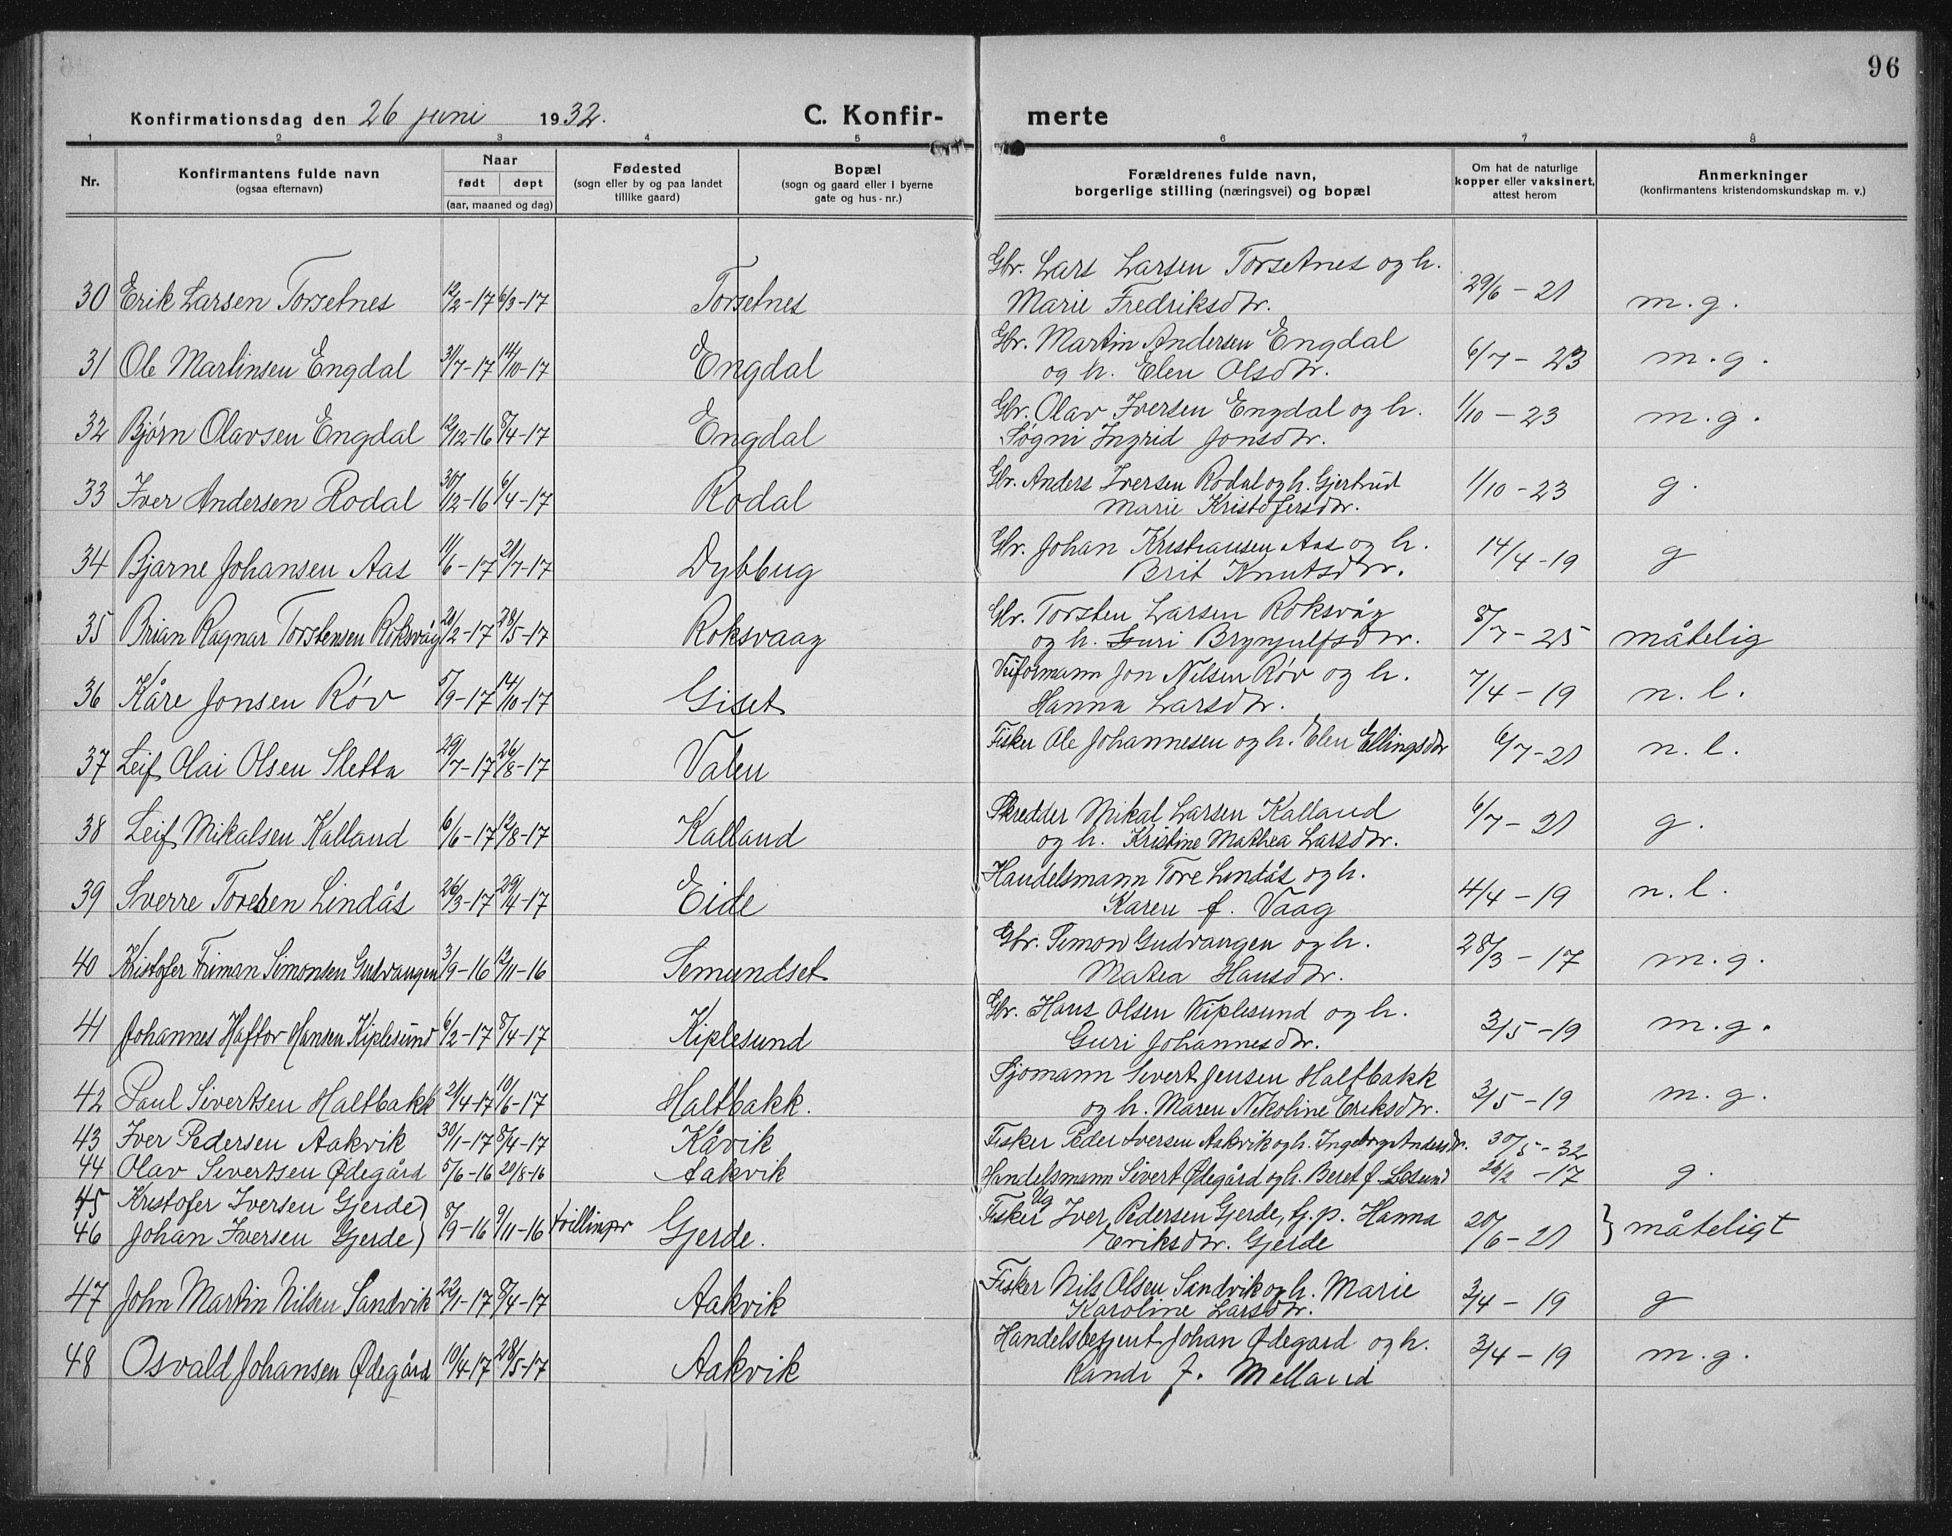 96
Konfirmationsdag den 26 juni 1932. C. Konfir- merte
1 2 3 4 5 6 7 8
Nr. Konfirmantens fulde navn (ogsaa efternavn) Naar født døpt (aar, maaned og dag) Fødested (sogn eller by og paa landet tillike gaard) Bopæl (sogn og gaard eller i byerne gate og hus-nr.) Forældrenes fulde navn, borgerlige stilling (næringsvei) og bopæl Om hat de naturlige kopper eller vaksinert, attest herom Anmerkninger (konfirmantens kristendomskundskap m. v.)
Gbr. Lars Larsen Torsetnes og h.
30 Erik Larsen Torsetnes 12/2-17 6/3-17 Torsetnes Marie Fredriksdtr. 29/6-21 m.g.
Gbr. Martin Andersen Engdal
31 Ole Martinsen Engdal 31/7-17 14/10-17 Engdal og h. Elen Olsdtr. 6/7-23 m.g.
Gbr. Olav Iversen Engdal og h.
32 Bjørn Olavsen Engdal 12/12-16 8/4-17 Engdal Søgni Ingrid Jonsdtr. 1/10-23 m.g.
Gbr. Anders Iversen Rodal og h. Gjertrud
33 Iver Andersen Rodal 30/12-16 6/4-17 Rodal Marie Kristofersdtr. 1/10-23 g.
Gbr. Johan Kristiansen Aas og h.
34 Bjarne Johansen Aas 11/6-17 21/7-17 Dybbug Brit Knutsdtr. 14/4-19 g
Gbr. Torsten Larsen Roksvåg
35 Brian Ragnar Torstensen Roksvåg 21/2-17 28/5-17 Roksvaag og h. Guri Brynjulfsdtr. 8/7-25 måtelig
Veiformann Jon Nilsen Røv og h.
36 Kåre Jonsen Røv 5/9-17 14/10-17 Giset Hanna Larsdtr. 7/4-19 n.l.
Fisker Ole Johannesen og h. Elen Ellingsdtr
37 Leif Olai Olsen Sletta 29/7-17 26/8-17 Valen 6/7-21 n.l.
Skredder Mikal Larsen Kalland
38 Leif Mikalsen Kalland 6/6-17 12/8-17 Kalland og h. Kristine Mathea Larsdtr. 6/7-21 g.
Handelsmann Tore Lindås og h.
39 Sverre Toresen Lindås 26/3-17 29/4-17 Eide Karen f. Vaag 4/4-19 n.l.
Gbr. Simon Gudvangen og h.
40 Kristofer Friman Simonsen Gudvangen 3/9-16 12/11-16 Semundset Matea Hansdtr. 28/3-17 m.g.
Gbr. Hans Olsen Kiplesund og h.
41 Johannes Haftor Hansen Kiplesund 6/2-17 8/4-17 Kiplesund Guri Johannesdtr. 3/5-19 m.g.
Sjømann Sivert Jensen Haltbakk
42 Paul Sivertsen Haltbakk 21/4-17 10/6-17 Haltbakk. og h. Maren Nikoline Eriksdtr. 3/5-19 m.g.
43 Iver Pedersen Aakvik 30/1-17 8/4-17 Kåvik Fisker Peder Iversen Aakvik og h. Ingeborg Andersdtr. 30/5-32
44 Olav Sivertsen Ødegård 5/6-16 20/8-16 Aakvik Handelsmann Sivert Ødegård og h. Beret f. 26/2-17 g.
45 Kristofer Iversen Gjerde) Ug Fisker Iver Pedersen Gjerde, f.p. Hanna
46 Johan Iversen Gjerde) 8/9-16 9/11-16 tvillinger Gjerde. Eriksdtr. Gjerde 20/6-21 } måteligt
Fisker Nils Olsen Sandvik og h. Marie
47 John Martin Nilsen Sandvik 22/1-17 8/4-17 Aakvik Karoline Larsdtr. 3/4-19 g
Handelsbetjent Johan Ødegard og h.
48 Osvald Johansen Ødegård 10/4-17 28/5-17 Aakvik Randi f. Melland 3/4-19 m.g.